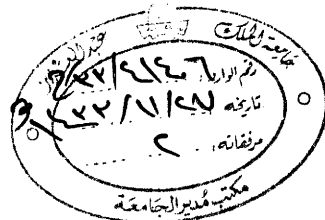 جامعة الملك عبد العزيز
رقم الوارد:
تاريخه ١٤٣٣/١١/٢٨
مرفقاته: ٢
مكتب مُدير الجَامعَة